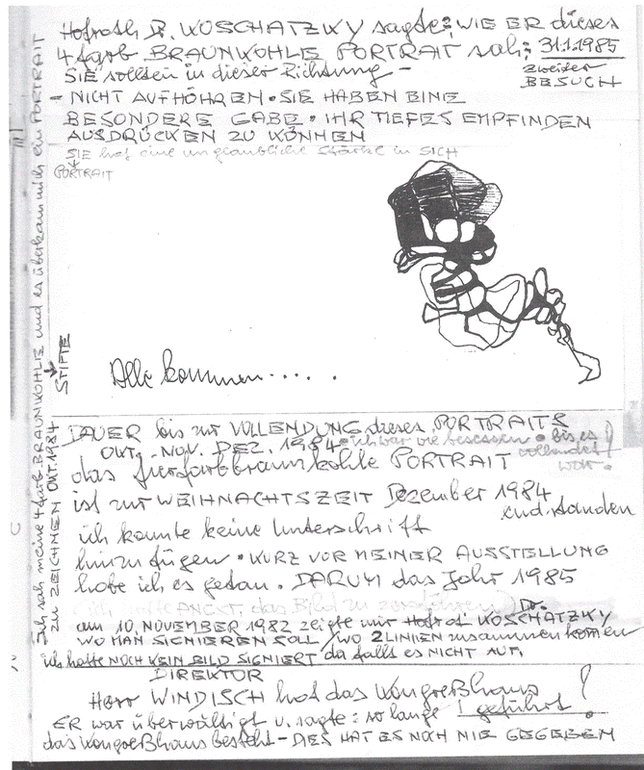 Hofrath Dr. KOSCHATZKY sagte: WIE ER dieses
4 farb BRAUNKOHLE PORTRAIT sah: 31.1.1985
SIE sollten in dieser Richtung -
zweiter
BESUCH
- NICHT AUFHÖREN · SIE HABEN EINE
BESONDERE GABE · IHR TIEFES EMPFINDEN
AUSDRÜCKEN ZU KÖNNEN
SIE hat eine unglaubliche Stärke in SICH
PORTRAIT
Ich sah meine 4 farb. BRAUNKOHLE und es überkam mich ein PORTRAIT
STIFTE
ZU ZEICHNEN OKT. 1984
Alle kommen.....
DAUER bis zur VOLLENDUNG dieses PORTRAITS
OKT. - NOV. DEZ. 1984 · ich war wie besessen · bis es
vollendet
war.
das vierfarbbraunkohle PORTRAIT
ist zur WEIHNACHTSZEIT Dezember 1984
entstanden
ich konnte keine Unterschrift
hinzufügen · KURZ VOR MEINER AUSSTELLUNG
habe ich es getan. DARUM das Jahr 1985
(ich hatte ANGST, das Bild zu zerstören)
am 10. NOVEMBER 1982 zeigte mir Hofrat Dr. KOSCHATZKY
WO MAN SIGNIEREN SOLL / WO 2 LINIEN zusammen kommen
ich hatte NOCH KEIN BILD SIGNIERT da fällt es NICHT AUF,
DIREKTOR
Herr WINDISCH hat das Kongreßhaus
geführt!
ER war überwältigt u. sagte: so lange
das Kongreßhaus besteht - DIES HAT ES NOCH NIE GEGEBEN